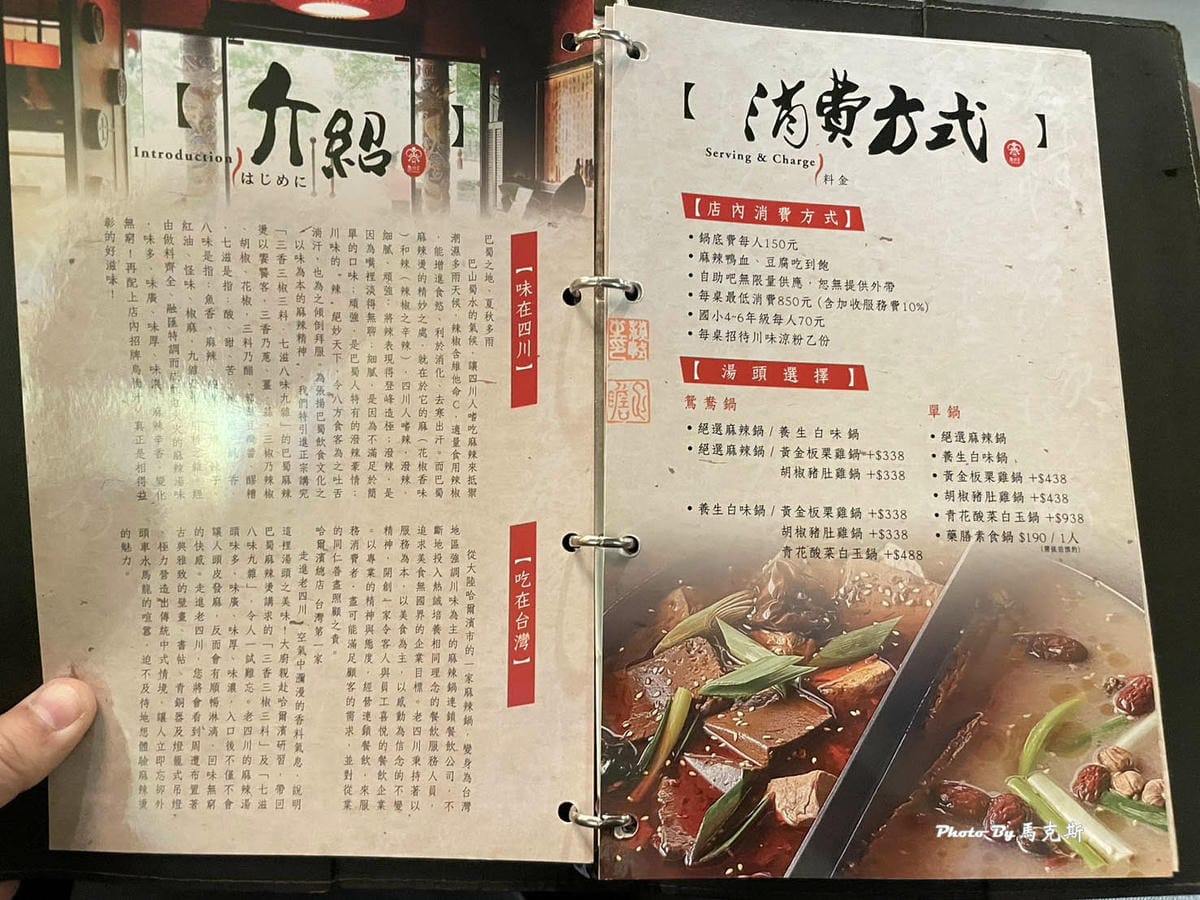 【介紹】
Introduction
はじめに
【味在四川】
巴蜀之地、夏秋多雨
巴山蜀水的氣候，讓四川人嗜吃麻辣來抵禦
潮濕多雨天候，辣椒含維他命C，適量食用辣椒
，能增進食慾、利於消化、去寒出汗。而巴蜀
麻辣燙的精妙之處，就在於它的麻（花椒香味
）和辣（辣椒之辛辣），四川人嗜辣、潑辣、
細膩、頑強；將辣表現得登峰造極；潑辣，是
因為嘴裡淡得無聊，細膩，是因為不滿足於簡
單的口味；頑強，是巴蜀人特有的潑辣豪情；
川味的。辣。絕妙天下，令八方食客為之吐舌
淌汗，也為之傾倒拜服。為張揚巴蜀飲食文化之
以味為本的麻辣精神，我們特引進正宗講究
「三香三椒三料，七滋八味九雜」的巴蜀麻辣
燙以饗饕客，三香乃蔥、薑、蒜，三椒乃辣椒
、胡椒、花椒，三料乃醋、
、七滋是指：酸、甜、苦
八味是指：魚香、麻辣
紅油、怪味、椒麻，九雜
由做料齊全、融匯特調而
、味多、味廣、味厚、味濃
無窮！再配上店內招牌
彰的好滋味！
【吃在台灣】
從大陸哈爾濱市的一家麻辣鍋，變身為台灣
地區強調川味為主的麻辣鍋連鎖餐飲公司，不
斷地投入熱誠培養相同理念的餐飲服務人員，
追求美食無國界的企業目標。老四川秉持著以
服務為本，以美食為主，以感動為信念的不變
精神，開創一家令客人與員工喜悅的餐飲企業
。以專業的精神與態度，經營連鎖餐飲，來服
務消費者，盡可能滿足顧客的需求，並對從業
的同仁善盡照顧之責。
哈爾濱總店 台灣第一家
走進老四川，空氣中瀰漫的香料氣息，說明
這裡湯頭之美味！大廚親赴哈爾濱研習，帶回
巴蜀麻辣燙講求的「三香三椒三料」及「七滋
八味九雜」，令人一試難忘。老四川的麻辣湯
頭味多、味廣、味厚、味濃，入口後不僅不會
讓人頭皮發麻，反而會有順暢淋漓，回味無窮
的快感。走進老四川，您將會看到周遭布置著
古典雅致的壁畫、書帖、青銅器及燈籠式吊燈
，極力營造出傳統中式情境，讓人立即忘卻外
頭車水馬龍的喧囂，迫不及待地想體驗麻辣燙
的魅力。
【消費方式】
Serving & Charge
料金
【店內消費方式】
• 鍋底費每人150元
• 麻辣鴨血、豆腐吃到飽
• 自助吧無限量供應，恕無提供外帶
• 每桌最低消費850元 (含加收服務費10%)
• 國小4~6年級每人70元
• 每桌招待川味涼粉乙份
【湯頭選擇】
鴛鴦鍋
• 絕選麻辣鍋 / 養生白味鍋
• 絕選麻辣鍋 / 黃金板栗雞鍋 +$338
胡椒豬肚雞鍋 +$338
• 養生白味鍋 / 黃金板栗雞鍋 +$338
胡椒豬肚雞鍋 +$338
青花酸菜白玉鍋 +$488
單鍋
• 絕選麻辣鍋
• 養生白味鍋
• 黃金板栗雞鍋 +$438
• 胡椒豬肚雞鍋 +$438
• 青花酸菜白玉鍋 +$938
• 藥膳素食鍋 $190 / 1人
(需提前預約)
Photo By 馬克斯